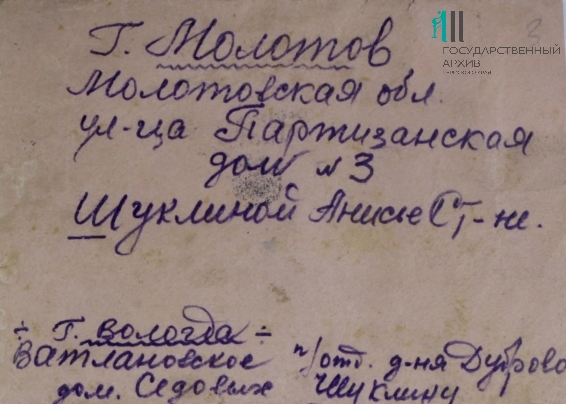 ГОСУДАРСТВЕННЫЙ
АРХИВ
3
Г. Молотов
Молотовская обл.
ул-ца Партизанская
дом № 3
Шуклиной Анисье Ст-не.
÷ Г. Вологда ÷
Ватлановское п/отд. д-ня Дуброво
дом. Седовых Шуклину